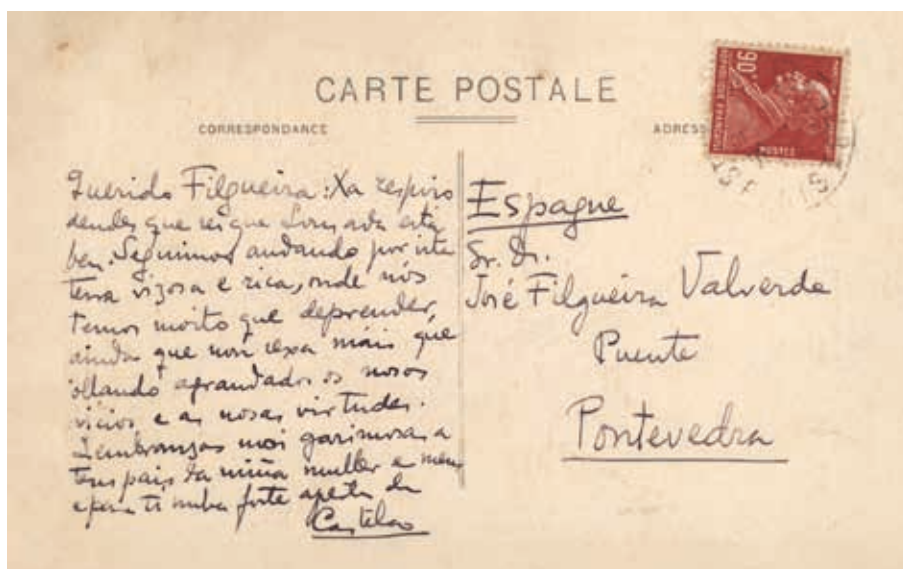 CARTE POSTALE
CORRESPONDANCE
ADRESS
90
POSTES
Querido Filgueira: Xa respiro
dendes que sei que Lousada está
ben. Seguimos andando por ista
terra vizosa e rica, onde nós
temos moito que deprender,
ainda que non sexa máis que
ollando agrandados os nosos
vicios e as nosas virtudes.
Lembranzas moi garimosas a
teus pais da miña muller e meu
e para ti unha forte aperta de
Castelao
Espagne
Sr. Dr.
José Filgueira Valverde
Puente
Pontevedra